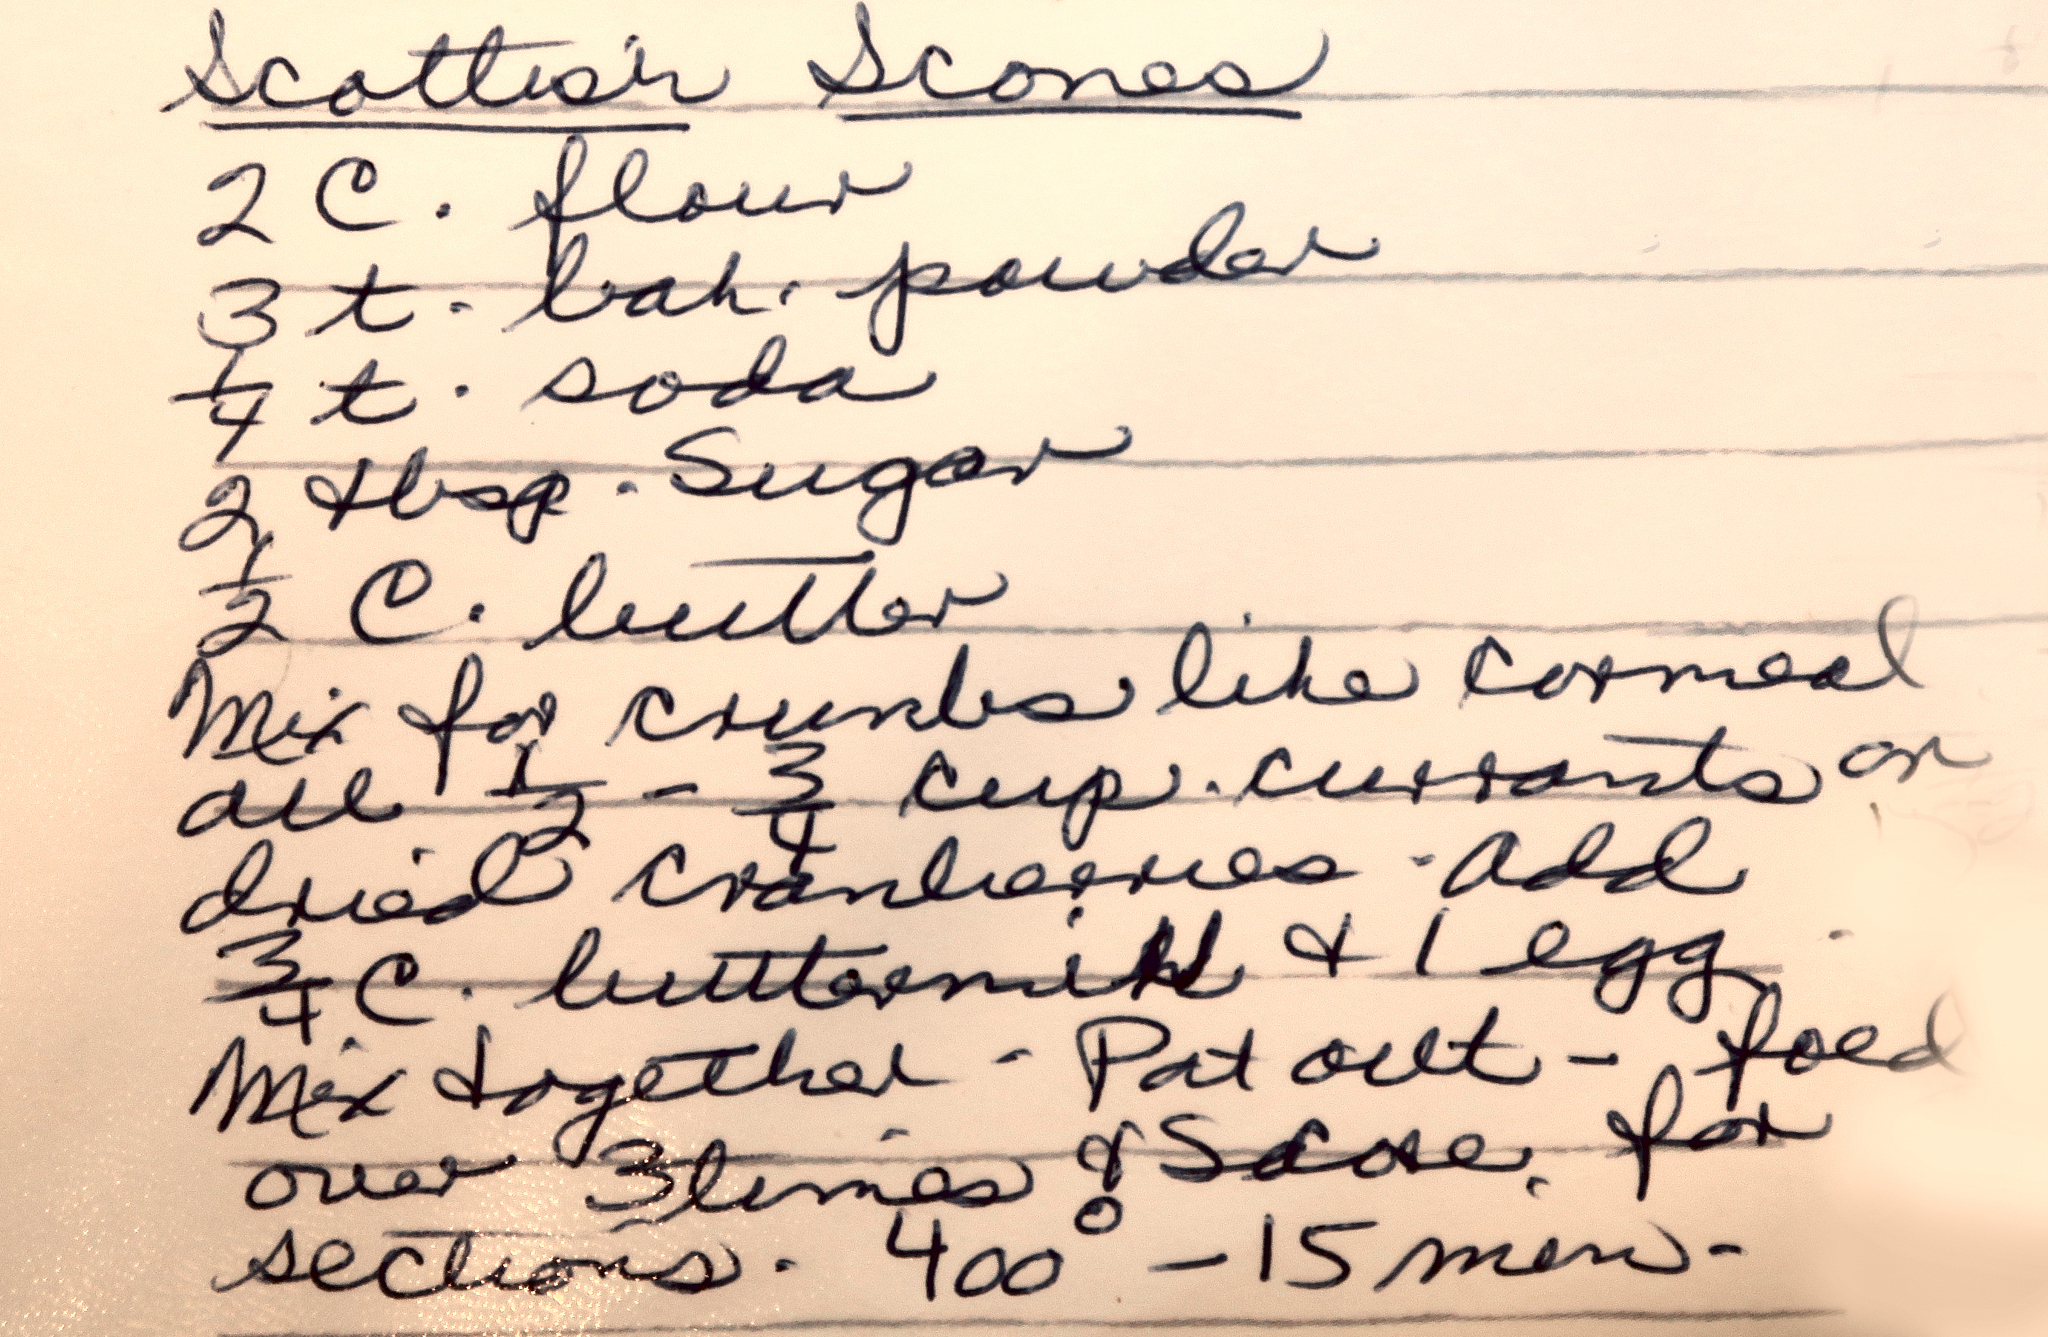 Scottish Scones
2 C. flour
3 t. bak. powder
1/4 t. soda
2 tbsp. Sugar
1/2 C. butter
Mix for crumbs like cornmeal
all 1/2 - 3/4 cup. currants or
dried cranberries - add
3/4 C. buttermilk & 1 egg.
Mix together - Pat out - foed
over 3 times & Score for
sections. 400° - 15 min -